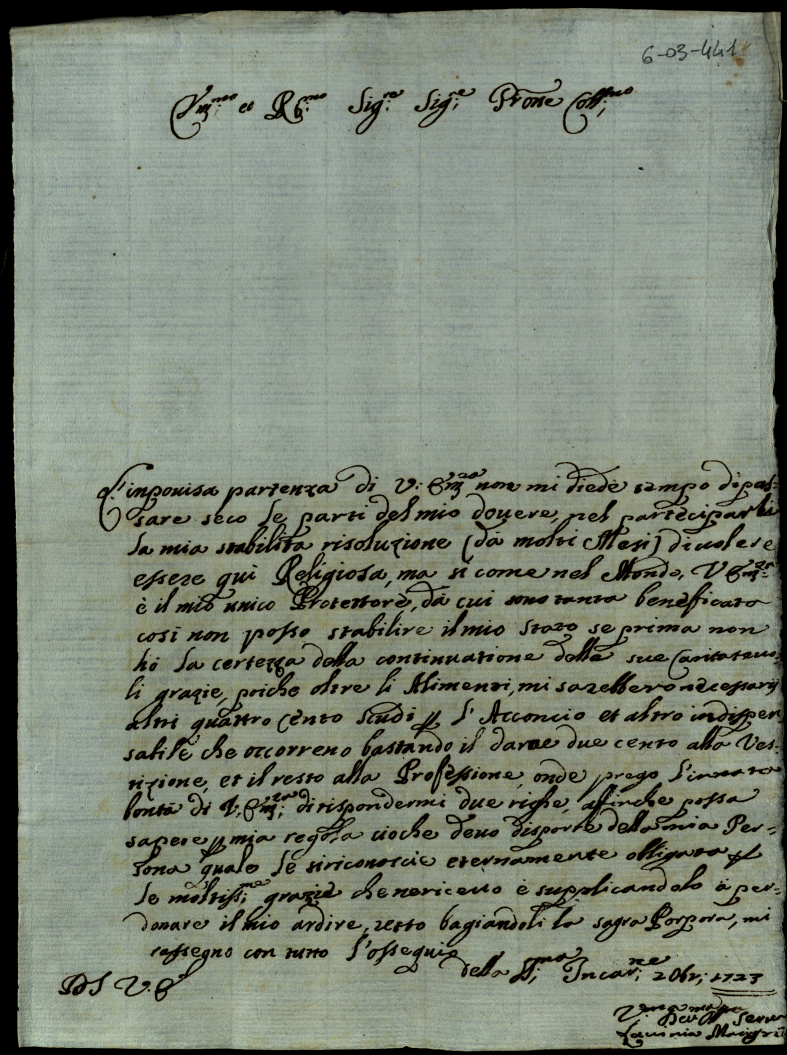 6-03-441
Em:mo et R6:mo Sig:re Sig:re Prone Coll:mo
L'inpouisa partenza di V: Em:za non mi diede tempo di pas-
sare seco le parti del mio douere, nel participarli
la mia stabilita risoluzione (da molti Mesi) di uolere
essere qui Religiosa, ma si come nel Mondo, V Em:za
è il mio unico Protettore, da cui sono tanto beneficata
così non posso stabilire il mio stato se prima non
hò la certezza della continuatione delle sue Caritateuo
li grazie, poiche oltre li Alimenti, mi sarebbero necessarij
altri quattro Cento Scudi p l'Acconcio et altro indispen
sabile che occorreno bastando il darne due cento alla Ves-
tizione, et il resto alla Professione, onde prego l'innata
bontà di V: Em:za di rispondermi due righe, affinche possa
sapere p mia regola cioche deuo disporre della mia Per-
sona quale le si riconoscie eternamente obligata p
le moltiss:me grazie che ne riceuo e supplicandolo à per-
donare il mio ardire, resto bagiandoli la sagra Porpora, mi
rassegno con tutto l'ossequio
della SS:ma Incar:ne 2 Obr; 1723
DS V: E
V:ma
Lauinia